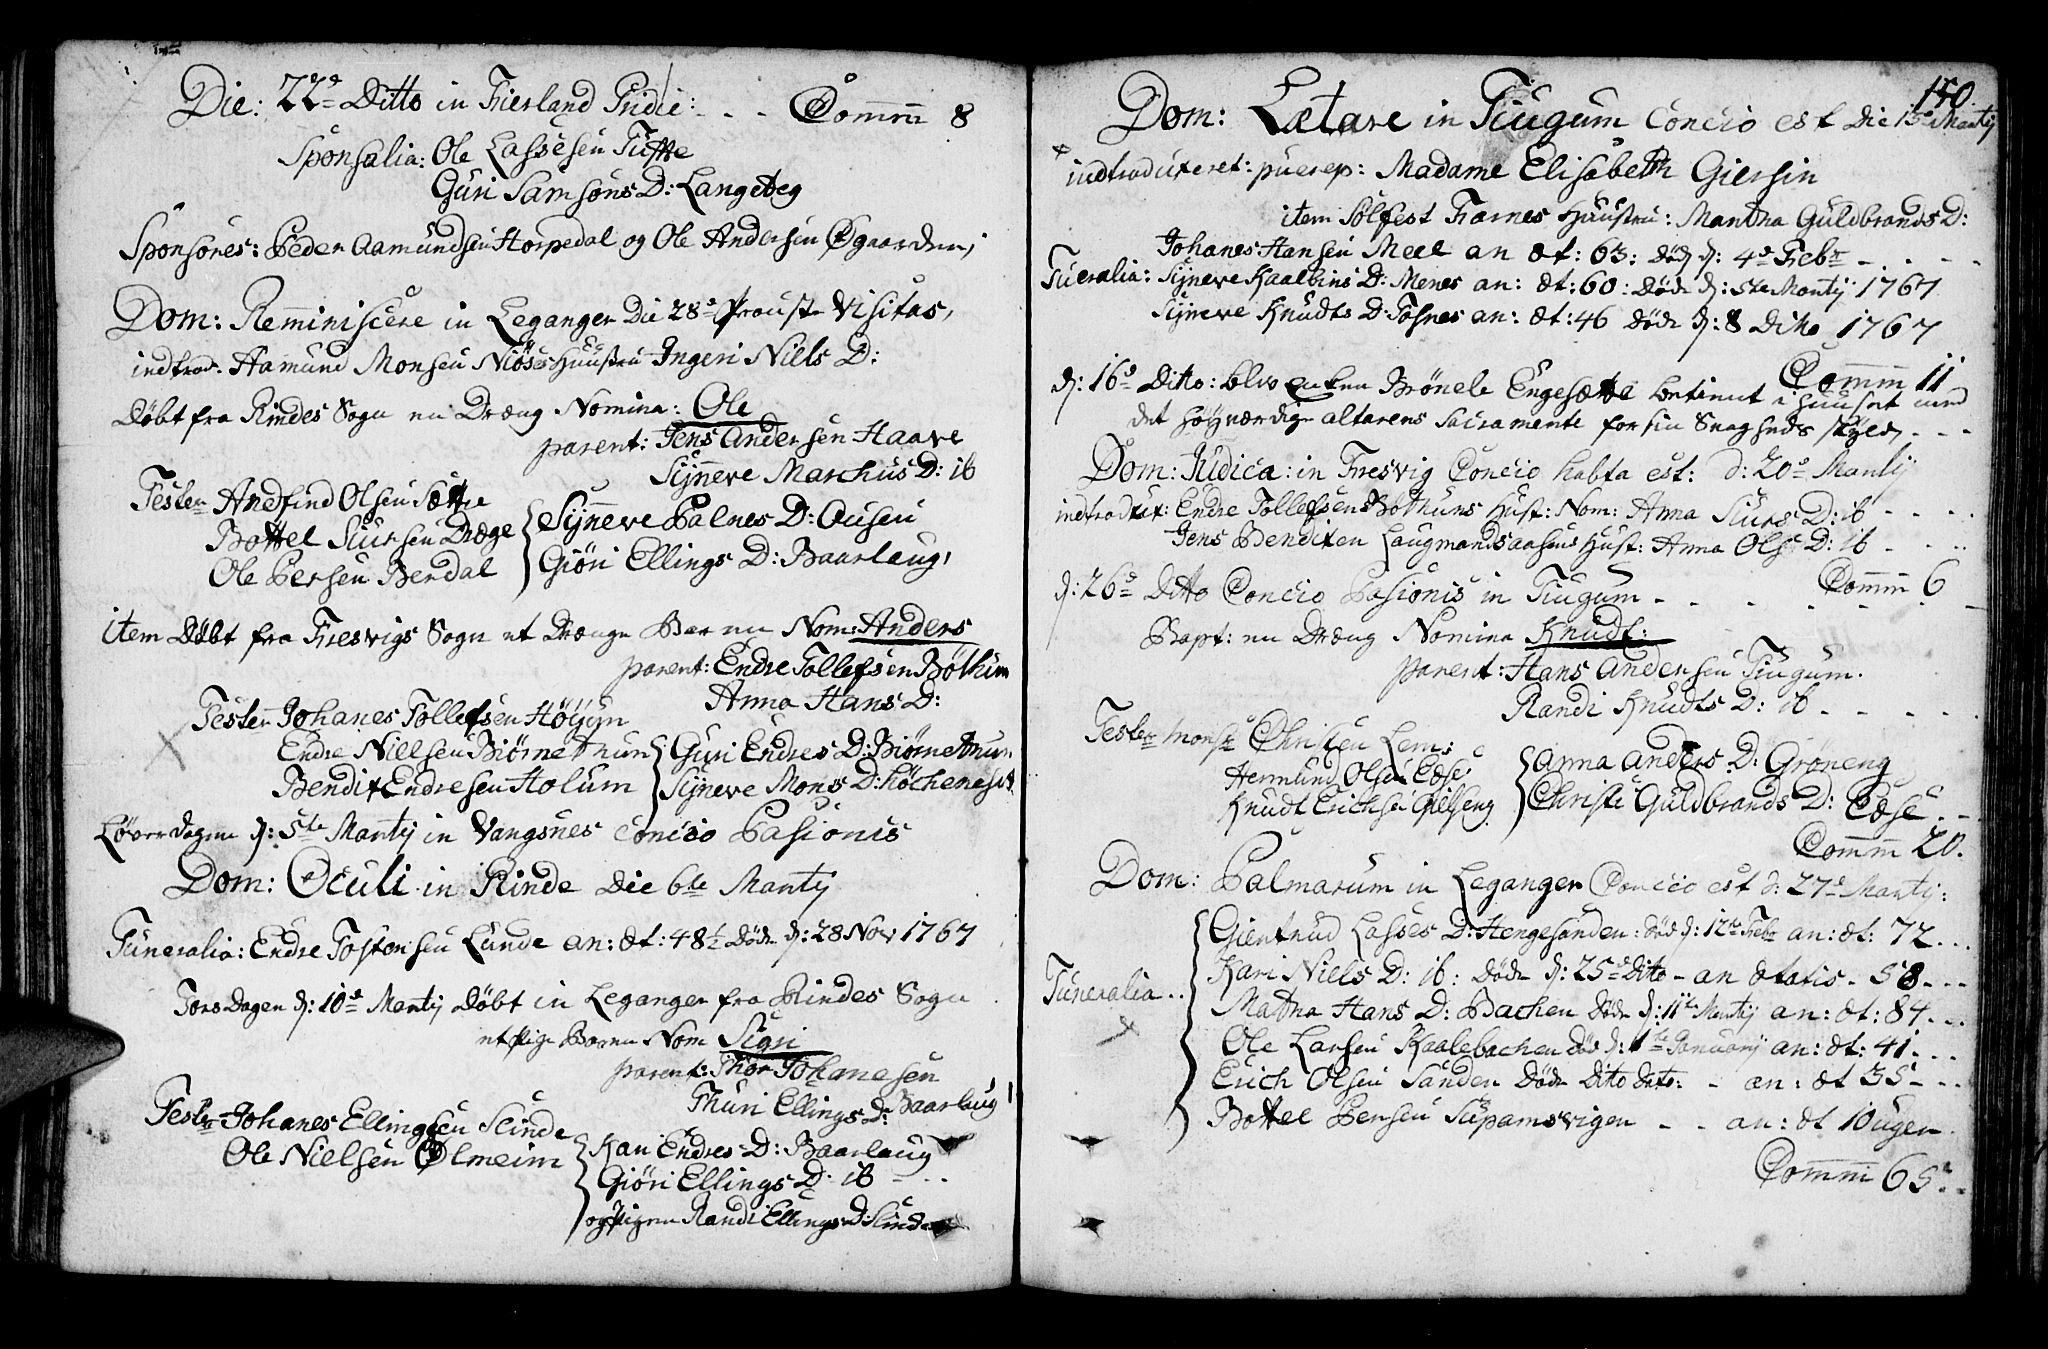 Die: 22de Ditto in Fierland Pridie: - - - Comm 8
Sponsalia: Ole Lassesen Tufte
Guri Samsons D: Langeteg
Sponsores: Peder Aamundsen Horpedal og Ole Andersen Øgaarden,
Dom: Reminiscere in Leganger Die 28de Prouste Visitas,
indtrod. Hamund Monsen Niøs Huustru Ingeri Niels D:
Døbt fra Rindes Sogn en Dræng Nomina: Ole
parent: Jens Andersen Haave
Sijneve Marchus D: ib
Tester Andfind Olsen Sætre
Bottel Siursen Dræge
Ole Persen Berdal
Sijneve Palnes D: Ousen
Giøri Ellings D: Baarlaug,
item Døbt fra Fresvigs Sogn et Drænge Barn Nom: Anders
parent: Endre Tollefsen Bøthun
Anna Hans D:
Tester Johanes Tollefsen Høijyn
Endre Nielsen Biørnetun
Bendit Endresen Holum
Guri Endres D: Biørnetun
Sijneve Mons D:
Løverdagen d: 5te Martij in Vangsnes Concio Pasionis
Dom: Oculi in Rinde Die 6te Martij
Funeralia: Endre Tostensen Lunde an: æt: 48½ Døde d: 28 Nov 1767
TorsDagen d: 10de Martij Døbt in Leganger fra Rindes Sogn
et Pige Barn Nom Sigri
parent: Thor Johanesen
Thuri Ellings D: Baarlaug
Tester Johanes Ellingsen Slinde
Ole Nielsen Ølmeim
Kari Endres D: Baarlaug
Giøri Ellings D: ib - - -
og Pigen Randi Ellings D: Slinde
150.
Dom: Lætare in Tiugum Concio est Die 13de Martij
indtroduceret: puerep: Madame Elisabeth Giersin
item Sølfest Farnes Huustru: Martha Guldbrands D:
Johanes Hansen Meel an æt: 63: død d: 4de Febr - - -
Fueralia: Sijneve Kaalbins D: Menes an: æt: 60: Døde d: 5te Martij 1767
Sijneve Knudts D: Tosnes an: æt: 46 Døde d: 8 Dito 1767
Comm 11
d: 16de Ditto: blev Brønele Engesætte betient i Huuset med
det høyværdige altarens Sacramente for sin Svagheds skyld, - - -
Dom: Judica: in Fresvig Concio habta est: d: 20de Martij
indtroduc: Endre Tollefsens Bøthuns Hust: Nom: Anna Siurs D: ib - - - -
Jens Benditen Laugmandsaasens Hust: Anna Ols D: ib - - -
Comm 6
d: 26de Ditto Concio Pasionis in Tiugum - - - - - -
Bapt: en Dræng Nomina Knudt:
parent: Hans Andersen Tiugum.
Randi Knudts D: ib - - - - -
Tester Monsr Christen Lem:
Hermund Olsen Eese
Knudt Erichsen Gielseng
Anna Anders D: Grøneng
Christi Guldbrands D: Eese. - -
Comm 20.
Dom: Palmarum in Leganger Concio est d: 27de Martij:
Funeralia . .
Giertrud Lasses D: Hengesanden: død d: 12te Febr an: æt: 72 . . .
Kari Niels D: ib: Døde d: 25de Dito - an ætatis - 58 - - -
Martha Hans D: Bachen Døde d: 11te Martij an: æt: 84 - - .
Ole Larsen Kaalebachen død d: 1te January an: æt: 41 - - .
Erich Olsen Sanden Døde Dito Dato: - an: æt 35 - - .
Bottel Persen Supamsvigen - - an: æt 10 ugen.
Comm 65. -